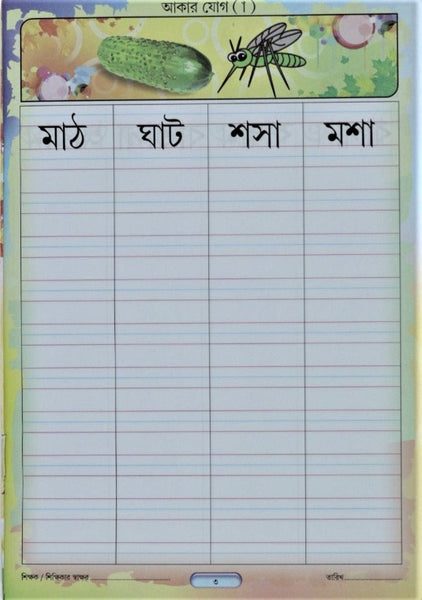 আকার যোগ ( 1 )
মাঠ ঘাট শসা মশা
শিক্ষক / শিক্ষিকার স্বাক্ষর
৩
তারিখ